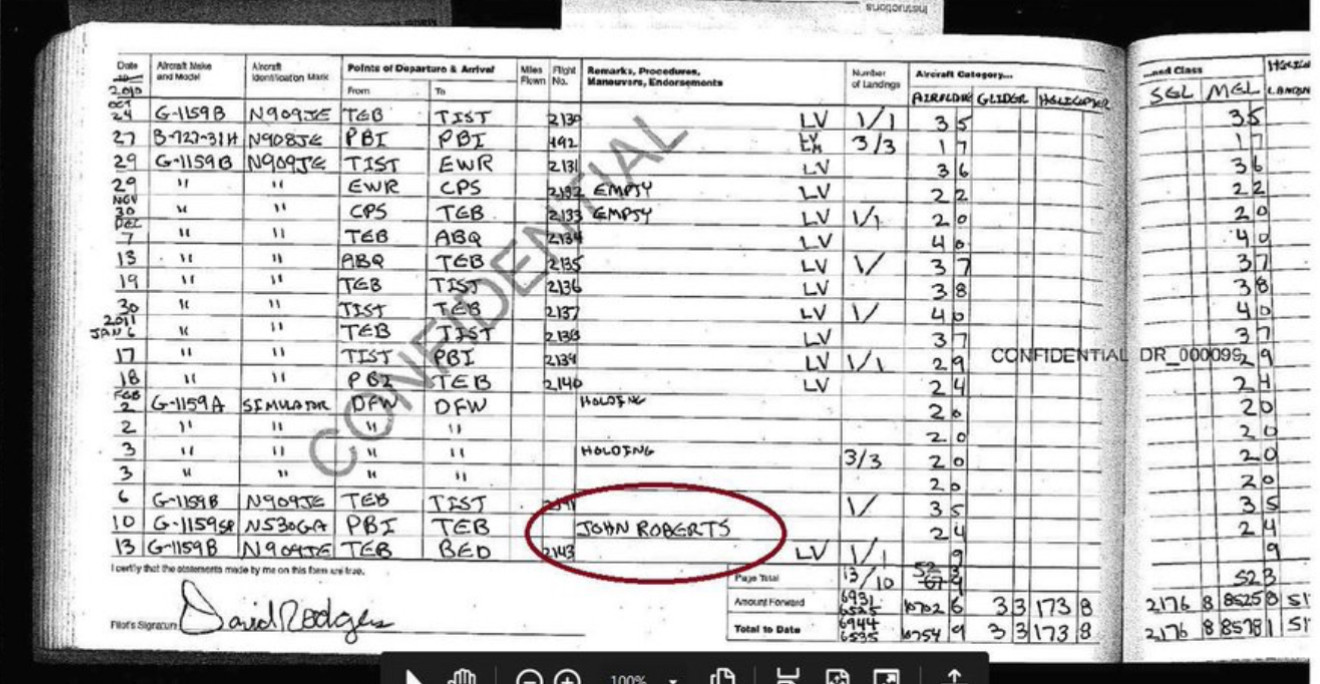 instructions
Date Aircraft Make and Model Aircraft Identification Mark Points of Departure & Arrival From To Miles Flown Flight No. Remarks, Procedures, Maneuvers, Endorsements Number of Landings Aircraft Category... ...and Class
2010 AIRPLANE GLIDER HELICOPTER SEL MEL
OCT 24 G-1159B N909JE TEB TIST 2130 LV 1/1 3 5 3 5
27 B-727-31H N908JE PBI PBI 492 LV 3/3 1 7 1 7
29 G-1159B N909JE TIST EWR 2131 LV 3 6 3 6
29 " " EWR CPS 2132 EMPTY LV 2 2 2 2
NOV 30 " " CPS TEB 2133 EMPTY LV 1/1 2 0 2 0
DEC 7 " " TEB ABQ 2134 LV 4 0 4 0
13 " " ABQ TEB 2135 LV 1/ 3 7 3 7
19 " " TEB TIST 2136 LV 3 8 3 8
30 " " TIST TEB 2137 LV 1/ 4 0 4 0
2011 JAN 6 " " TEB TIST 2138 LV 3 7 3 7
17 " " TIST PBI 2139 LV 1/1 2 9 CONFIDENTIAL DR_000099 2 9
18 " " PBI TEB 2140 LV 2 4 2 4
FEB 2 G-1159A SIMULATOR DFW DFW HOLDING 2 0 2 0
2 " " " " 2 0 2 0
3 " " " " HOLDING 3/3 2 0 2 0
3 " " " " 2 0 2 0
6 G-1159B N909JE TEB TIST 2141 1/ 3 5 3 5
10 G-1159SP N530GA PBI TEB JOHN ROBERTS 2 4 2 4
13 G-1159B N909JE TEB BED 2143 LV 1/1 9 9
CONFIDENTIAL
I certify that the statements made by me on this form are true.
Page Total 13/10 52 3 52 3
Amount Forward 6931 6525 10702 6 3 3 173 8 2176 8 8525 8
Total to Date 6944 6535 10754 9 3 3 173 8 2176 8 8578 1
Pilot's Signature David Rodgers
100%